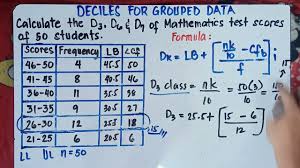 DECILES FOR GROUPED DATA
Calculate the D3, D6, & D9 of Mathematics test scores
of 50 students.
Formula:
Scores Frequency LB <cf
46-50 4 45.5 50
41-45 8 40.5 46
36-40 11 35.5 38
31-35 9 30.5 27
26-30 12 25.5 18
21-25 6 20.5 6
LL UL n=50
DK = LB + [ nk/10 - cfb / f ] i
D3 class = nk/10 = 50(3)/10 =
D3 = 25.5 + [ 15 - 6 / 12 ]